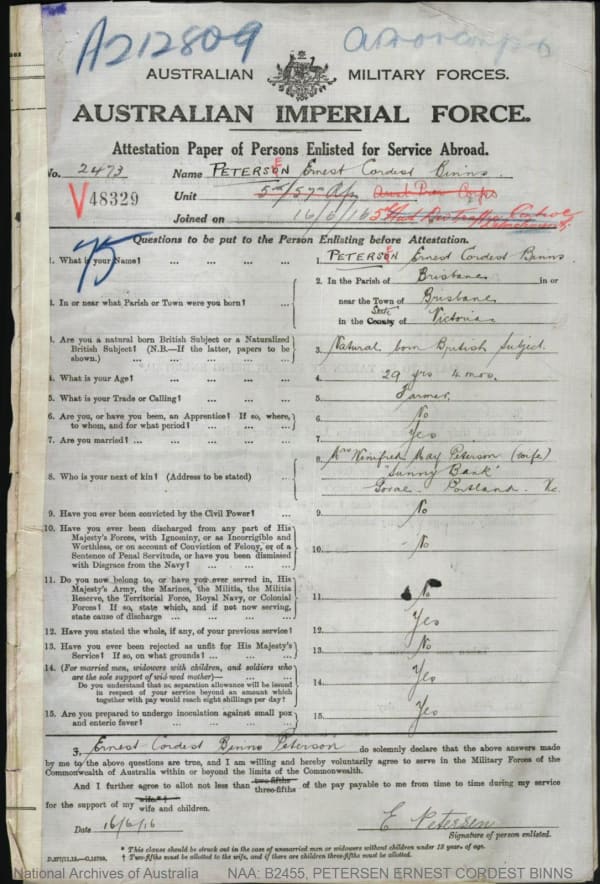 A212809
AUSTRALIAN MILITARY FORCES.
AUSTRALIAN IMPERIAL FORCE.
Attestation Paper of Persons Enlisted for Service Abroad.
No. 2473 Name PETERSON E Ernest Cordest Binns
V48329 Unit 5th/57th
Joined on 16/6/16
75
Questions to be put to the Person Enlisting before Attestation.
1. What is your Name? ... ... ... ... 1. PETERSON E Ernest Cordest Binns
2. In or near what Parish or Town were you born? ... ... 2. In the Parish of Brisbane in or
near the Town of Brisbane
State
in the County of Victoria
3. Are you a natural born British Subject or a Naturalized British Subject? (N.B.—If the latter, papers to be shown.) ... ... 3. Natural born British Subject.
4. What is your Age? ... ... ... 4. 29 yrs 4 mos.
5. What is your Trade or Calling? ... ... ... 5. Farmer.
6. Are you, or have you been, an Apprentice? If so, where, to whom, and for what period? ... ... ... 6. No
7. Are you married? ... ... ... ... 7. Yes
8. Who is your next of kin? (Address to be stated) ... 8. Mrs Winifred May Peterson (wife)
"Sunny Bank"
Gorae. Portland. Vic.
9. Have you ever been convicted by the Civil Power? ... 9. No
10. Have you ever been discharged from any part of His Majesty's Forces, with Ignominy, or as Incorrigible and Worthless, or on account of Conviction of Felony, or of a Sentence of Penal Servitude, or have you been dismissed with Disgrace from the Navy? ... ... 10. No
11. Do you now belong to, or have you ever served in, His Majesty's Army, the Marines, the Militia, the Militia Reserve, the Territorial Force, Royal Navy, or Colonial Forces? If so, state which, and if not now serving, state cause of discharge ... ... 11. No
12. Have you stated the whole, if any, of your previous service? 12. Yes
13. Have you ever been rejected as unfit for His Majesty's Service? If so, on what grounds? ... ... 13. No
14. (For married men, widowers with children, and soldiers who are the sole support of widowed mother)—
Do you understand that no separation allowance will be issued in respect of your service beyond an amount which together with pay would reach eight shillings per day? 14. Yes
15. Are you prepared to undergo inoculation against small pox and enteric fever? ... ... ... 15. Yes
I, Ernest Cordest Binns Peterson do solemnly declare that the above answers made
by me to the above questions are true, and I am willing and hereby voluntarily agree to serve in the Military Forces of the
Commonwealth of Australia within or beyond the limits of the Commonwealth.
And I further agree to allot not less than two-fifths three-fifths of the pay payable to me from time to time during my service
for the support of my wife.*† wife and children.
Date 16/6/16 E Petersen
Signature of person enlisted.
* This clause should be struck out in the case of unmarried men or widowers without children under 18 years of age.
† Two-fifths must be allotted to the wife, and if there are children three-fifths must be allotted.
National Archives of Australia NAA: B2455, PETERSEN ERNEST CORDEST BINNS